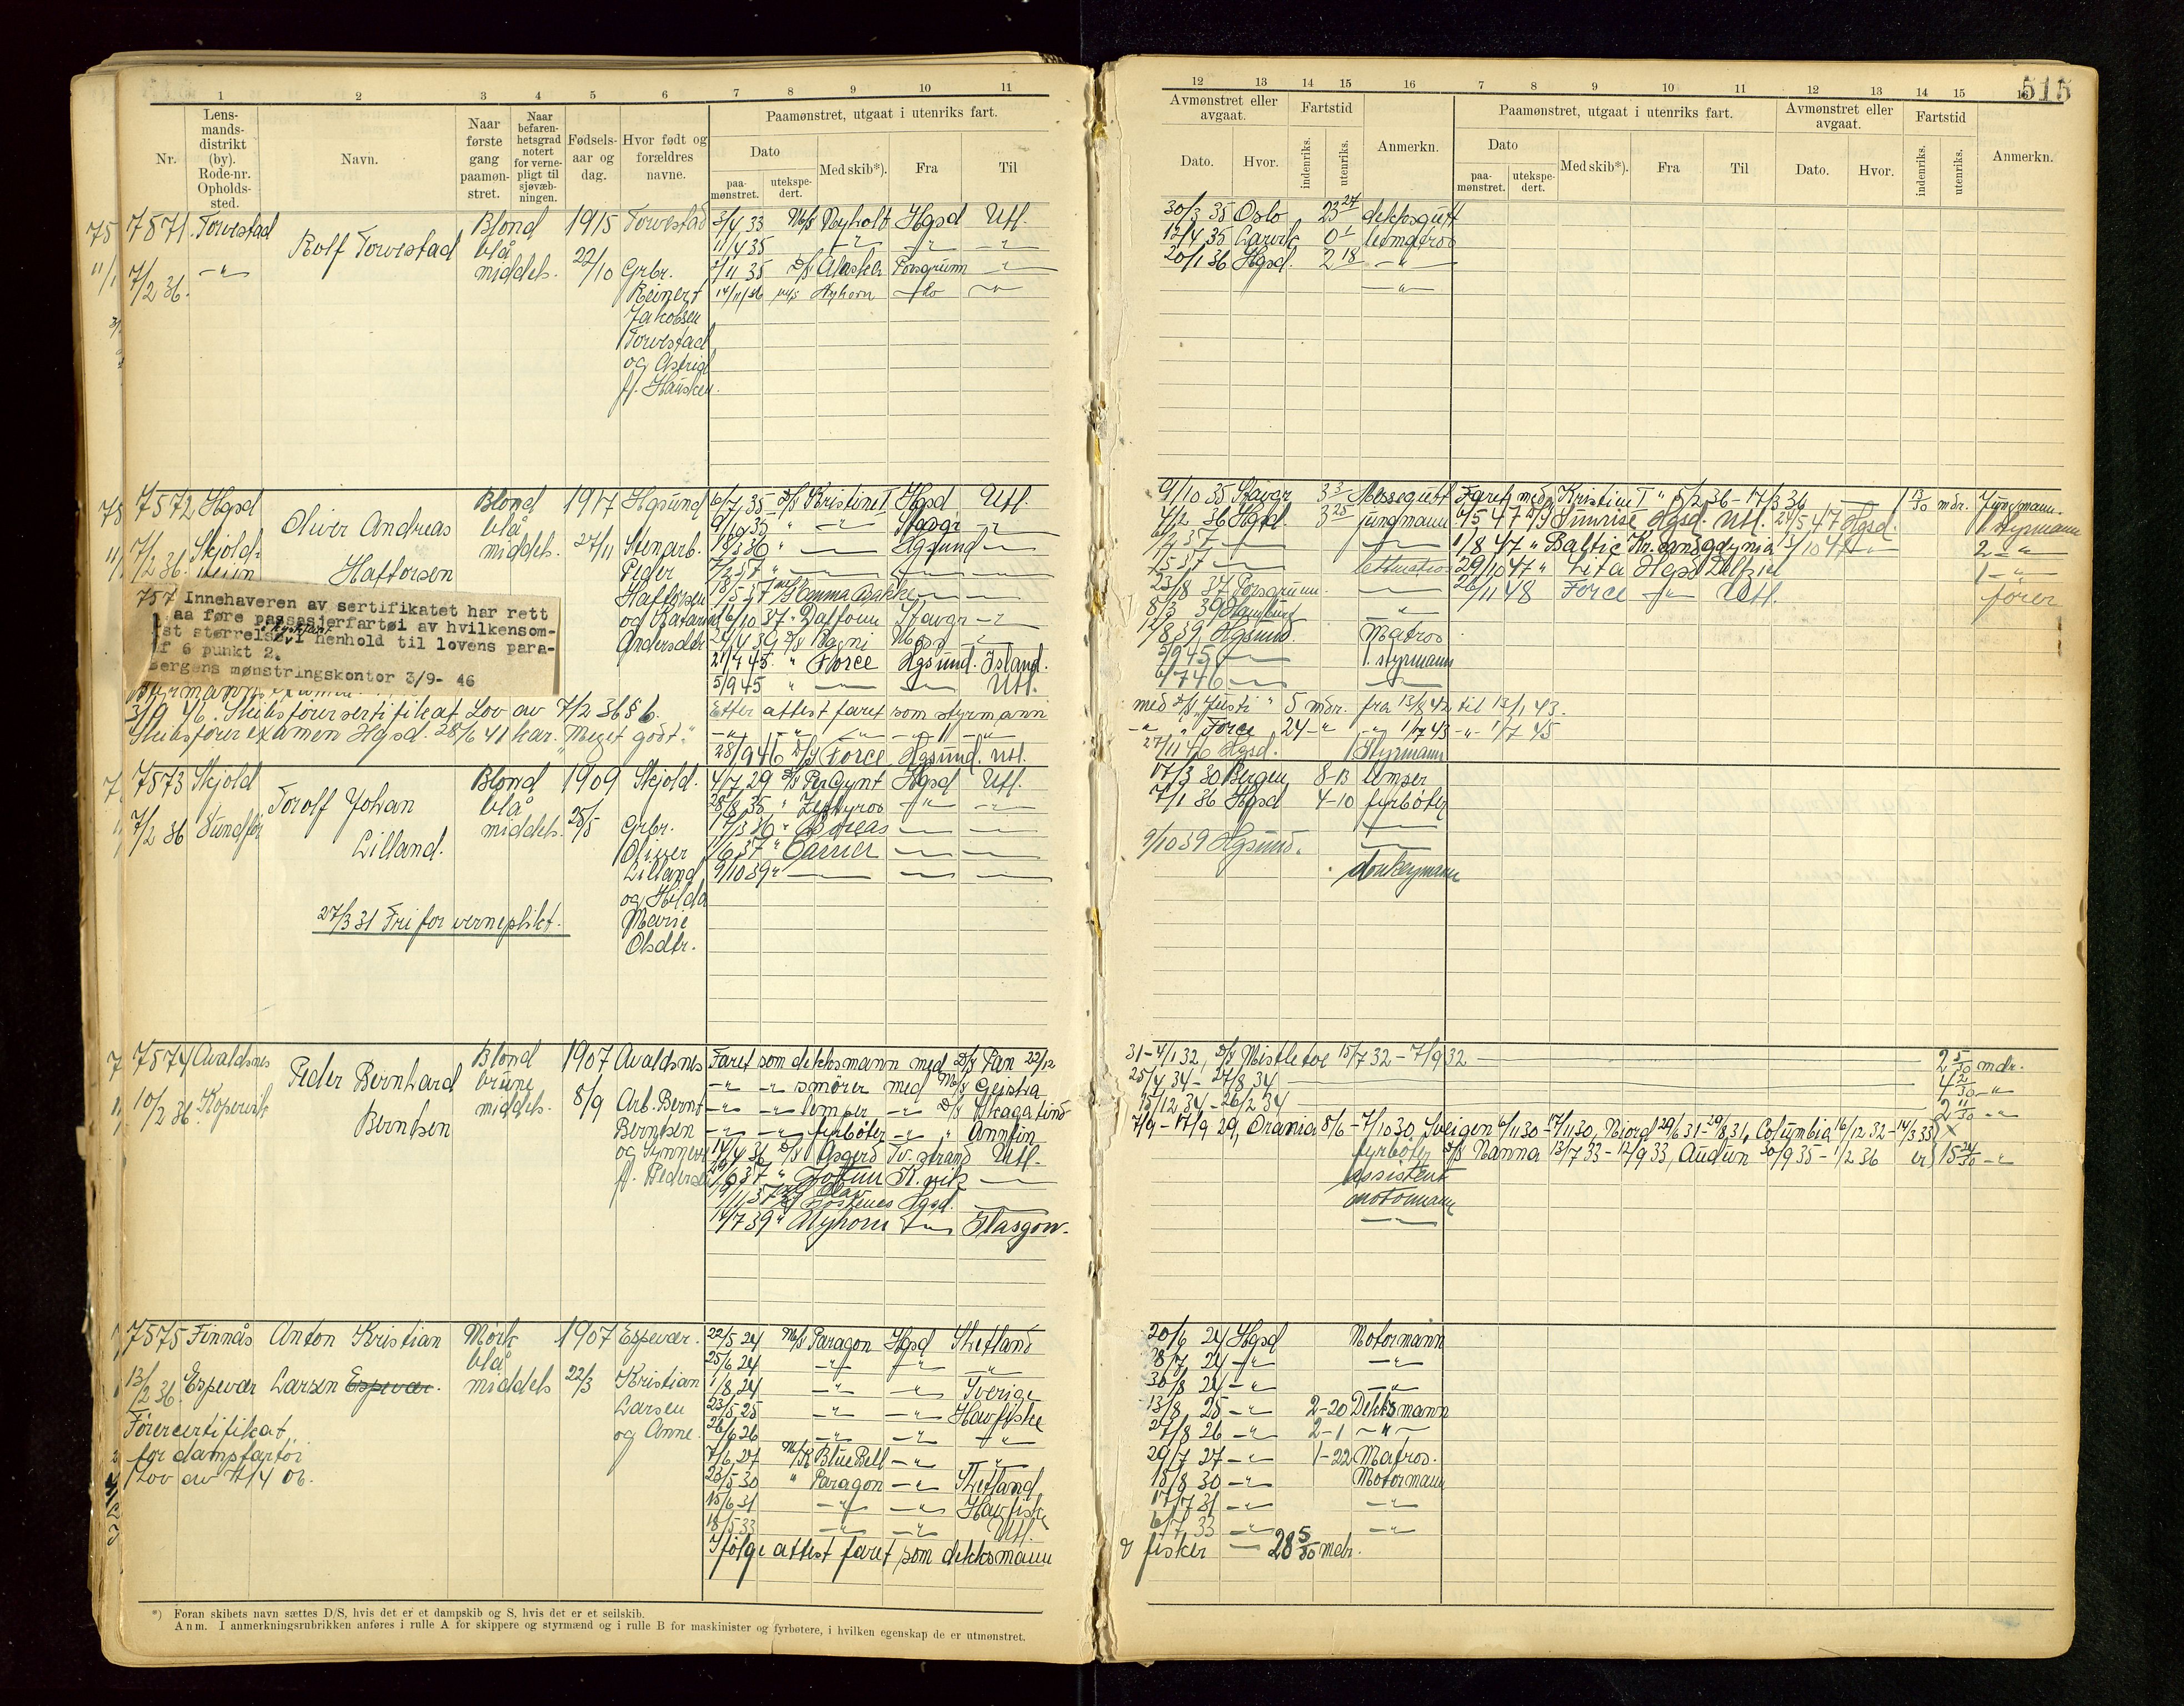 515
1 2 3 4 5 6 7 8 9 10 11
Nr.
Lens-
mands-
distrikt
(by).
Rode-nr.
Opholds-
sted.
Navn.
Naar
første
gang
paamøn-
stret.
Naar
befaren-
hetsgrad
notert
for verne-
pligt til
sjøvæb-
ningen.
Fødsels-
aar og
dag.
Hvor født og
forældres
navne.
Paamønstret, utgaat i utenriks fart.
Dato
paa-
mønstret.
utekspe-
dert.
Med skib*).
Fra
Til
12 13 14 15 16 7 8 9 10 11 12 13 14 15
Avmønstret eller
avgaat.
Dato.
Hvor.
Fartstid
indenriks.
utenriks.
Anmerkn.
Paamønstret, utgaat i utenriks fart.
Dato
paa-
mønstret.
utekspe-
dert.
Med skib*).
Fra
Til
Avmønstret eller
avgaat.
Dato.
Hvor.
Fartstid
indenriks.
utenriks.
Anmerkn.
7571. Torvestad
7/2 36. -"-
Rolf Torvestad
Blond
blå
middels.
1915
22/10
Torvestad
Grbr.
Reinert
Jakobsen
Torvestad
og Astrid
f. Hausken.
3/4 33 M/S Nyholt Hgsd Utl.
11/4 35 -"- -"- -"-
7/11 35 D/S Alaska Porsgrunn -"-
14/11 36 M/S Nyhorn
30/3 35 Oslo 23 24 dekksgutt
12/4 35 Larvik 0 1 lettmatros
20/1 36 Hgsd. 2 18 -"-
-"-
7572 Hgsd
7/2 36. Skjold-
Oliver Andreas
Haftorsen
Blond
blå
middels.
1917
27/11
Hgsund
Stenarb.
Peder
Haftorsen
Andersdtr
6/7 35 D/S Kristine I Hgsd Utl.
9/10 35 " -"- Stavgr -"-
18/3 36 " Hgsund
24/4 39 D/S Ragni
21/7 45. " Force Hgsund. Island.
5/9 45 " Utl.
Etter attest faret som styrmann
28/9 46 D/S Force Hgsund. Utl.
757
Innehaveren av sertifikatet har rett
aa føre passasjerfartøi av hvilkensom-
st størrelse i kystfart i henhold til lovens para-
f 6 punkt 2.
Bergens mønstringskontor 3/9- 46
3/9 46. Skibsførersertifikat Lov av 7/2 36 § 6.
Skibsførerexamen Hgsd. 28/6 41 kar. "Meget godt."
9/10 35 Stavgr 3 3 Messegutt
4/2 36 Hgsd. 3 25 jungmann
23/8 37 Porsgrunn.
8/3 39 Hamburg "
1/8 39 Hgsund. Matros
5/9 45 1. styrmann
6/7 46
med D/S "Justi" 5 mdr. fra 13/8 42 til 13/1 43.
-"- "Force 24 -"- 1/7 43 -"- 1/7 45
27/11 46 Hgsd. 1 Styrmann
Faret med "Kristine I" 5/2 36 - 17/3 36 mdr. Jungmann.
6/5 47 D/S Sunrise Hgsd. Utl. 24/5 47 Hgsd. 1. styrmann
1/8 47 " Baltic Kr.sand Gdynia 13/10 47 2 -"-
29/10 47 " Lita 1 -"-
26/11 48 Force -"- Utl. fører
7573 Skjold
7/2 36
Torolf Johan
Lilland.
Blond
blå
middels.
1909
28/5
Skjold.
Grbr.
Oliver
Lilland
og Hilda
Marie
Olsdtr.
27/3 31 Fri for verneplikt.
4/7 29 D/S Per Gynt Hgsd Utl.
28/8 35 " Zephyros -"- -"-
17/3 36 " Boreas
1/6 37 " Carrier
9/10 39 "
17/3 30 Bergen 8-13 lemper
7/1 36 Hgsd 4-10 fyrbøter
9/10 39 Hgsund.
donkeymann
7574 Avaldsnes
10/2 36. Kopervik
Peder Bernhard
Berntsen
Blond
brune
middels.
1907
8/9
Avaldsnes
Arb. Bernt
Berntsen
f. Pedersen
Faret som dekksmann med D/S Pan 22/12
-"- -"- smører med M/S Geisha
-"- -"- lemper -"- D/S Skagatind
-"- -"- fyrbøter -"- " Annfin
14/4 36 D/S Asgerd Tv.strand Utl.
1/6 37 " Jotun K.vik
9/11 37 Hgsd.
14/7 39 " Nyhorn -"- Glasgow.
31 - 4/1 32, D/S Mistletoe 15/7 32 - 7/9 32 2 5/30 mdr.
25/4 34 - 27/8 34 4 2/30 -"-
15/12 34 - 26/2 34 2 11/30 -"-
7/9 - 17/9 29, Orania 8/6 - 7/10 30 Sveigen 6/11 30 - 17/11 30, Njord 29/6 31 - 29/8 31, Columbia 16/12 32 - 14/3 33
fyrbøter D/S Nanna 13/7 33 - 12/9 33, Audun 30/9 35 - 1/2 36 er 15 24/30 -"-
assistent
motormann
7575 Finnås
13/2 36. Espevær
Anton Kristian
Larsen Espevær.
Førercertifikat
for dampfartøi
Lov av 17/4 06.
Mørk
blå
middels
1907
22/3
Espevær.
Kristian
Larsen
og Anne.
22/5 24 M/S Paragon Hgsd Shetland
25/6 24 -"- -"- -"-
1/8 24 -"- -"- Sverige
23/5 25 -"- -"- Havfiske
26/6 26 -"- -"- -"-
7/6 27 M/K Blue Bell -"- -"-
28/5 30 " Paragon -"- Shetland
15/6 31 -"- -"- Havfiske
18/5 33 -"- -"- Utl.
Ifølge attest faret som dekksmann
20/6 24 Hgsd Motormann
18/7 24 -"- -"-
30/8 24 -"- -"-
13/8 25 -"- 2-20 Dekksmann
27/8 26 -"- 2-1 -"-
29/7 27 -"- 1-22 Matros.
15/8 30 -"- Motormann
17/7 31 -"- -"-
6/7 33 -"- -"-
fisker 28 5/30 mdr.
*) Foran skibets navn sættes D/S, hvis det er et dampskib og S, hvis det er et seilskib.
Anm. I anmerkningsrubrikken anføres i rulle A for skippere og styrmænd og i rulle B for maskinister og fyrbøtere, i hvilken egenskap de er utmønstret.